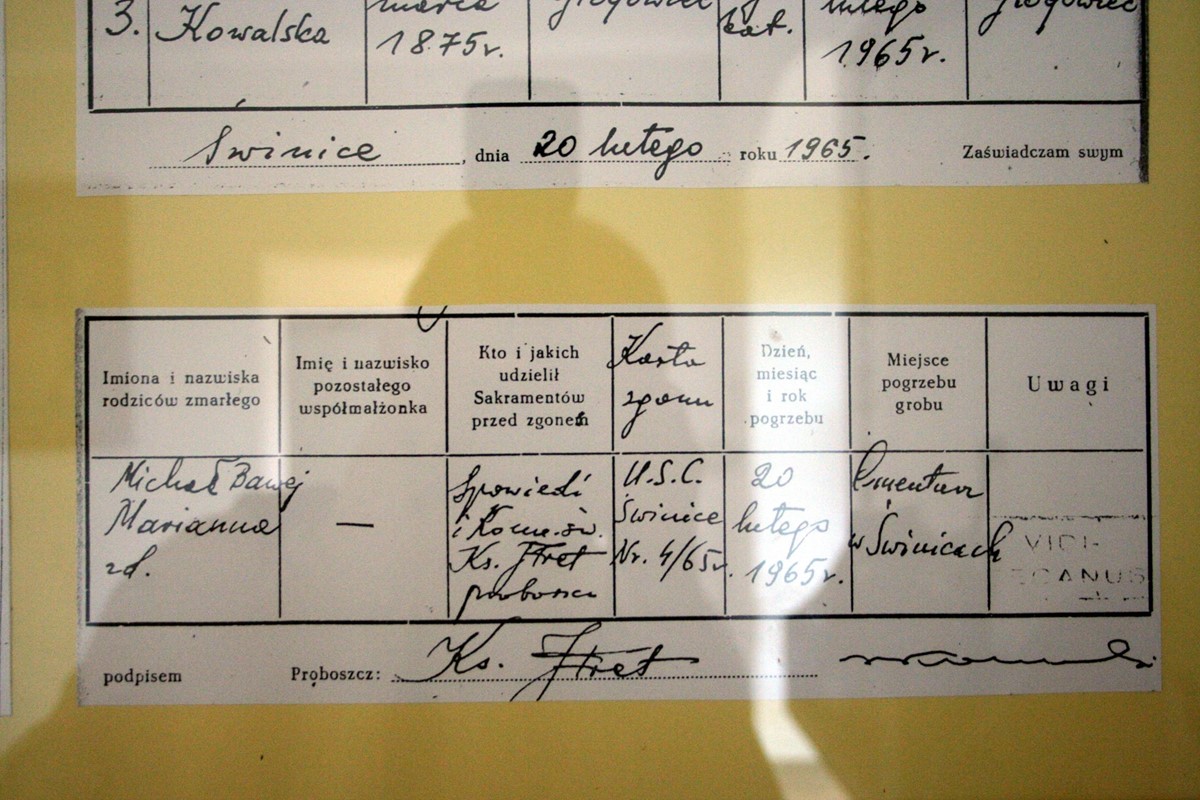 3. Kowalska
marca
1875r.
kat.
lutego
1965r.
Swinice, dnia 20 lutego roku 1965. Zaświadczam swym
Imiona i nazwiska
rodziców zmarłego
Imię i nazwisko
pozostałego
współmałżonka
Kto i jakich
udzielił
Sakramentów
przed zgonem
Karta
zgonu
Dzień,
miesiąc
i rok
pogrzebu
Miejsce
pogrzebu
grobu
Uwagi
Michał Bawej
Marianna
zd.
—
Spowiedź
i Kom. św.
Ks. Ftret
proboszcz
U.S.C.
Świnice
Nr. 4/65r.
20
lutego
1965r.
Cmentarz
w Świnicach
VICI-
DECANUS
podpisem Proboszcz: Ks. Ftret